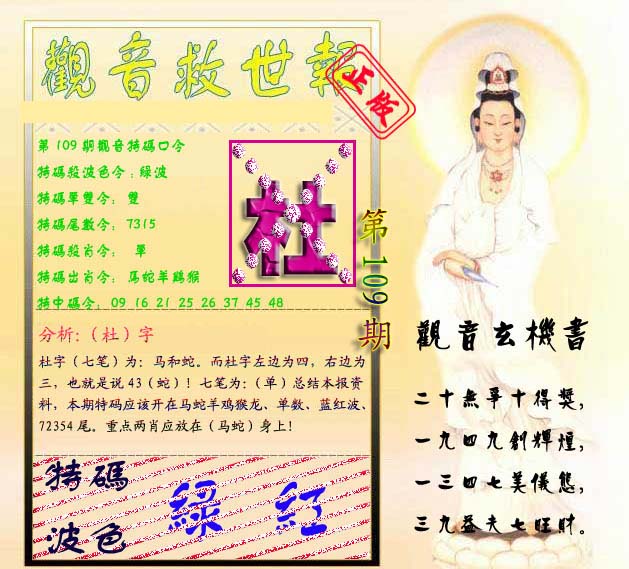 觀音救世報
正版
第109期觀音特碼口令
特碼殺波色令:綠波
特碼單雙令: 雙
特碼尾數令: 7315
特碼殺肖令: 單
特碼出肖令: 馬蛇羊鷄猴
特中碼令: 09 16 21 25 26 37 45 48
杜
第109期
分析:（杜）字
杜字（七笔）为：马和蛇。而杜字左边为四，右边为
三，也就是说43（蛇）！七笔为：（单）总结本报资
料，本期特码应该开在马蛇羊鸡猴龙、单数、蓝红波、
72354尾。重点两肖应放在（马蛇）身上！
特碼
波色
綠 紅
觀音玄機書
二十無爭十得獎，
一九四九創輝煌，
一三四七美儀態，
三九益夫七旺財。